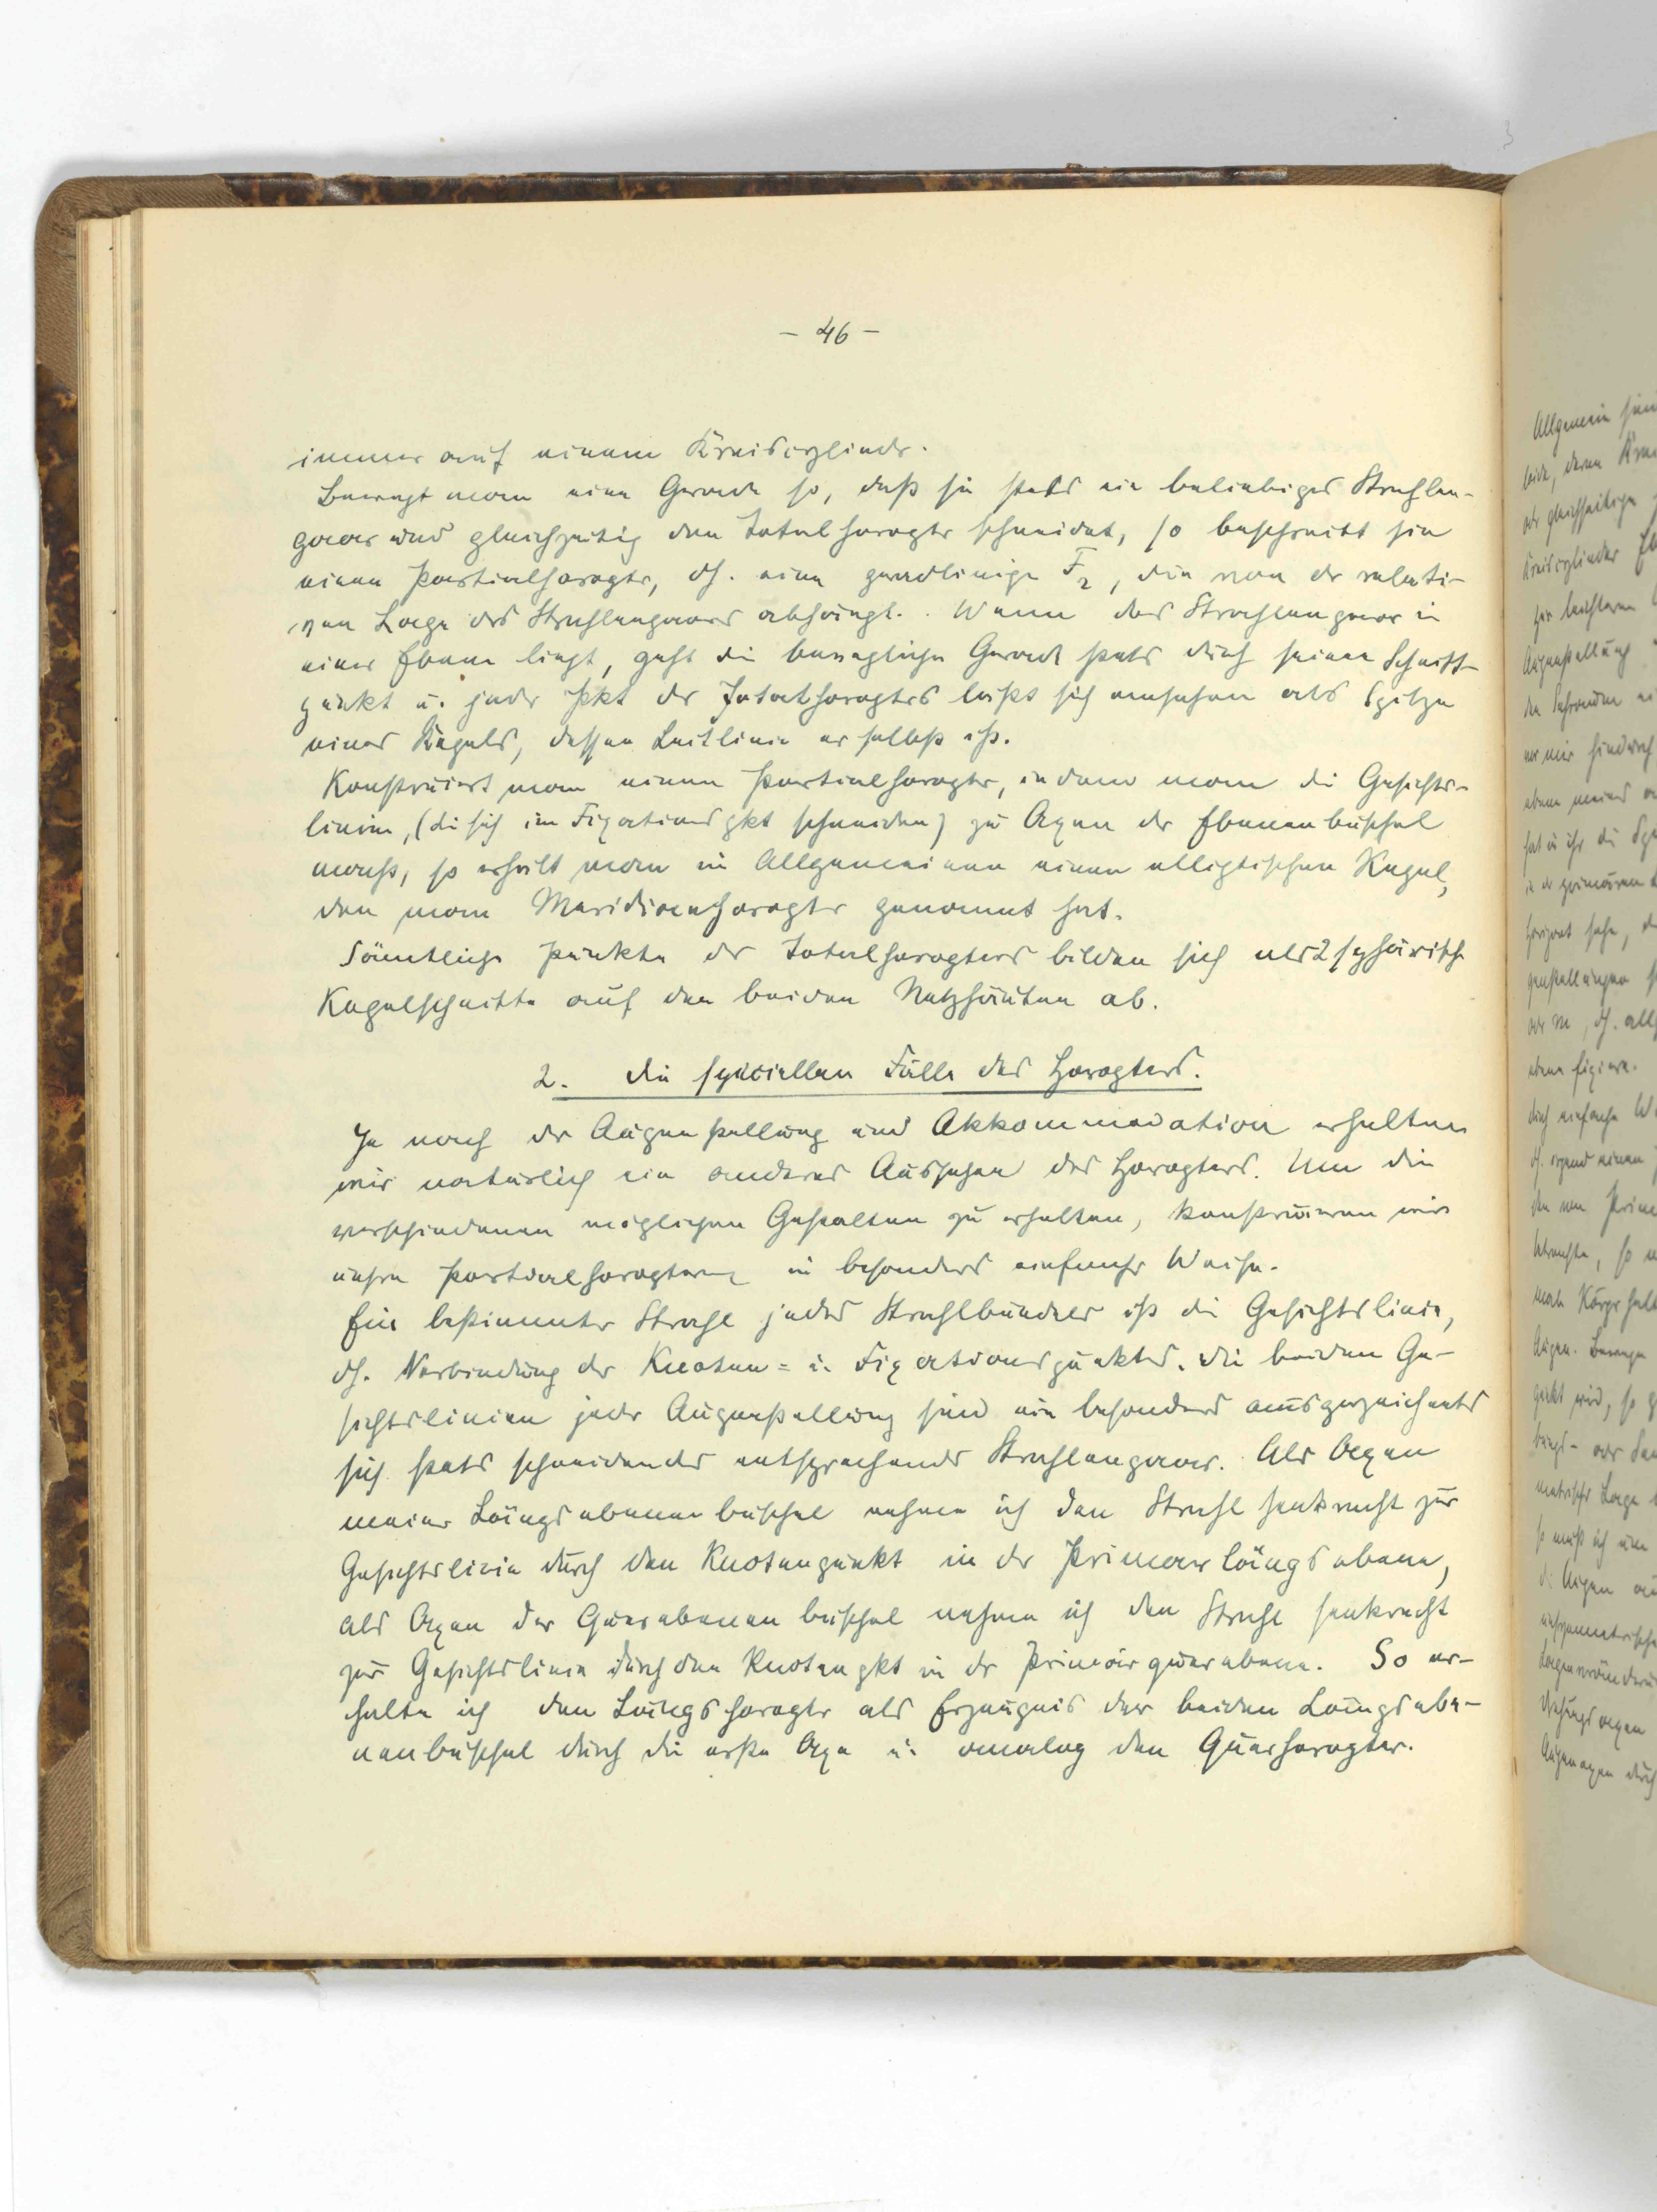 - 46 -
immer auf einem Kreiscylinder.
Bewegt man eine Gerade so, daß sie stets ein beliebiges Strahlen-
paar und gleichzeitig den Totalhoropter schneidet, so beschreibt sie
einen Partialhoropter, dh. eine geradlinige F2, die von der relati-
ven Lage des Strahlenpaares abhängt. Wenn das Strahlenpaar in
einer Ebene liegt, geht die bewegliche Gerade stets durch seinen Schnitt-
punkt u. jeder Pkt des Totalhoropters läßt sich ansehen als Spitze
eines Kegels, dessen Leitlinie er selbst ist.
Konstruiert man einen Partialhoropter, indem man die Gesichts-
linien, (die sich im Fixationspkt schneiden) zu Axen der Ebenenbüschel
macht, so erhält man im Allgemeinen einen elliptischen Kegel,
den man Meridianhoropter genannt hat.
Sämtliche Punkte des Totalhoropters bilden sich als 2 sphärische
Kegelschnitte auf den beiden Netzhäuten ab.
2. Die speciellen Fälle des Horopters.
Je nach der Augenstellung und Akkommodation erhalten
wir natürlich ein anderes Aussehen des Horopters. Um die
verschiedenen möglichen Gestalten zu erhalten, konstruieren wir
unsere Partialhoropteren in besonders einfacher Weise.
Ein bestimmter Strahl jedes Strahlbündels ist die Gesichtslinie,
dh. Verbindung des Knoten- u. Fixationspunktes. Die beiden Ge-
sichtslinien jeder Augenstellung sind ein besonders ausgezeichnetes
sich stets schneidendes entsprechendes Strahlenpaar. Als Axen
meiner Längsebenenbüschel nehme ich den Strahl senkrecht zur
Gesichtslinie durch den Knotenpunkt in der Primärlängsebene,
als Axen der Querebenenbüschel nehme ich den Strahl senkrecht
zur Gesichtslinie durch den Knotenpkt in der Primärquerebene. So er-
halte ich den Längshoropter als Erzeugnis der beiden Längsebe-
nenbüschel durch die erste Axe u. analog den Querhoropter.